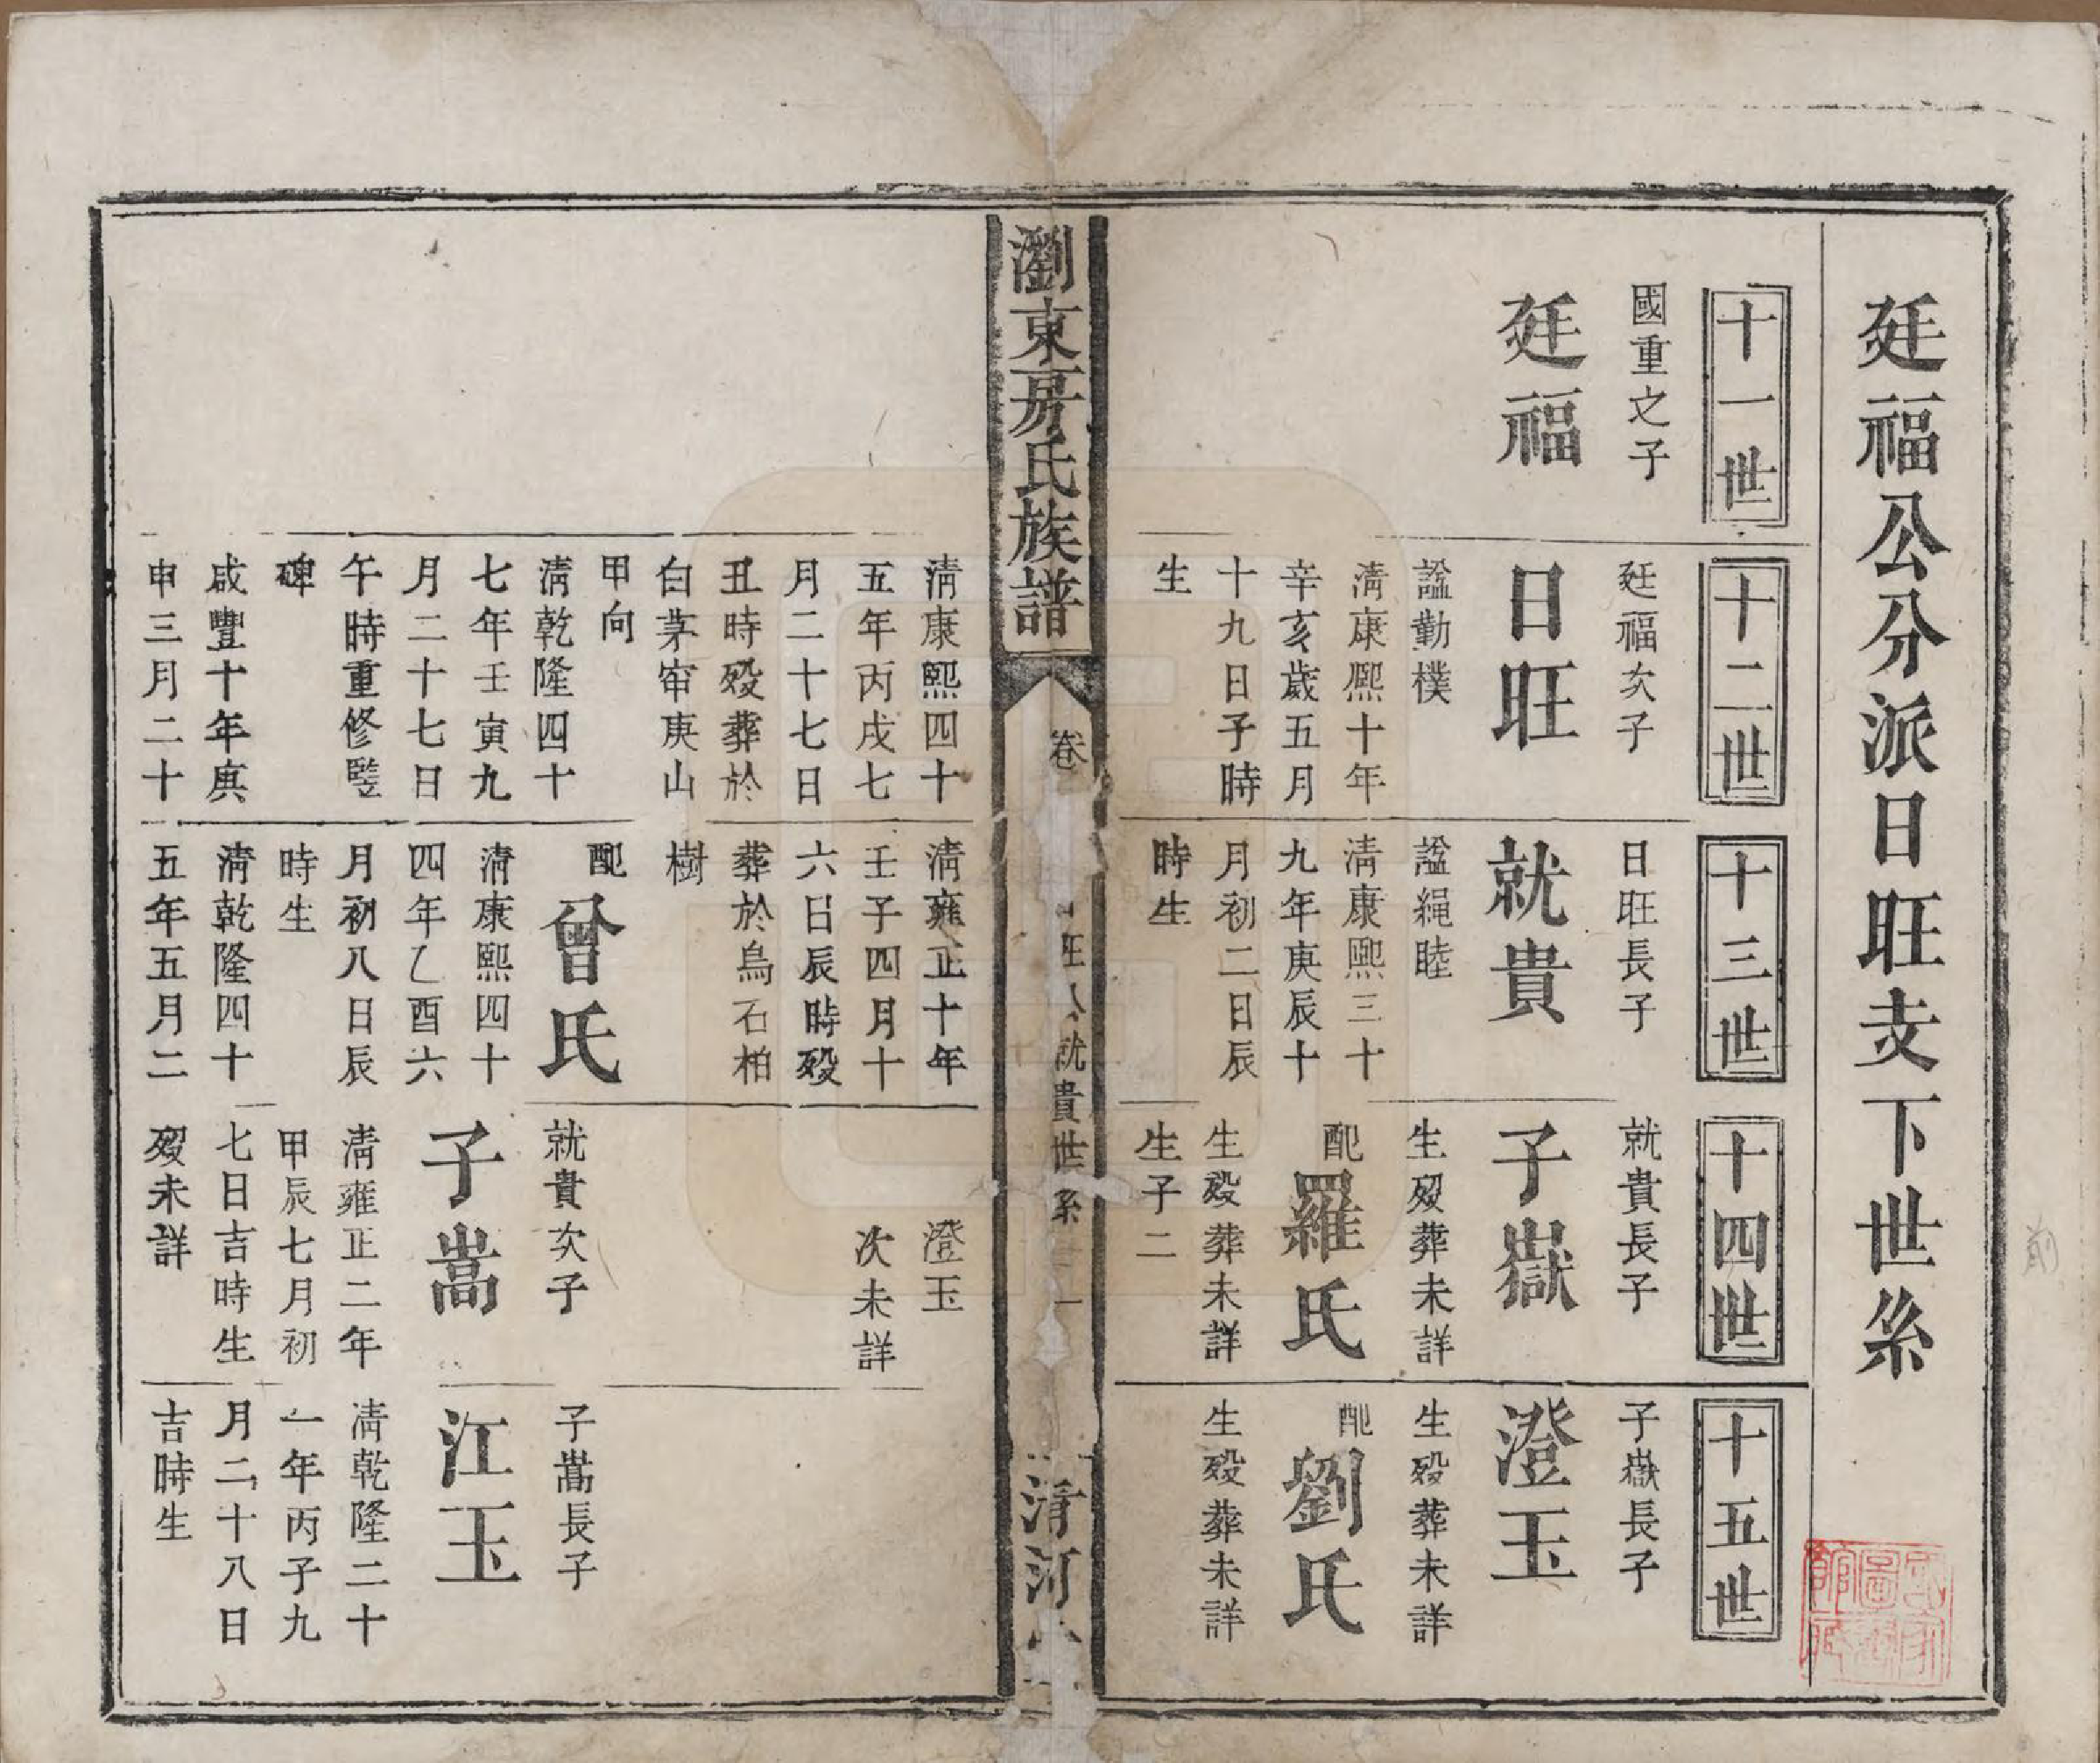 廷福公分派日旺支下世系
十一世
國重之子
廷福
十二世
廷福次子
日旺
諡勤樸
淸康熙十年
辛亥歲五月
十九日子時
生
淸康熙四十
五年丙戌七
月二十七日
丑時歿葬於
白茅窜庚山
甲向
淸乾隆四十
七年壬寅九
月二十七日
午時重修竪
碑
咸豐十年庚
申三月二十
十三世
日旺長子
就貴
諡繩睦
淸康熙三十
九年庚辰十
月初二日辰
時生
淸雍正十年
壬子四月十
六日辰時歿
葬於烏石柏
樹
配
曾氏
淸康熙四十
四年乙酉六
月初八日辰
時生
淸乾隆四十
五年五月二
十四世
就貴長子
子嶽
生歿葬未詳
配
羅氏
生歿葬未詳
生子二
澄玉
次未詳
就貴次子
子嵩
淸雍正二年
甲辰七月初
七日吉時生
歿未詳
十五世
子嶽長子
澄玉
生歿葬未詳
配
劉氏
生歿葬未詳
子嵩長子
江玉
淸乾隆二十
一年丙子九
月二十八日
吉時生
瀏東房氏族譜
卷
旺公就貴世系
清河